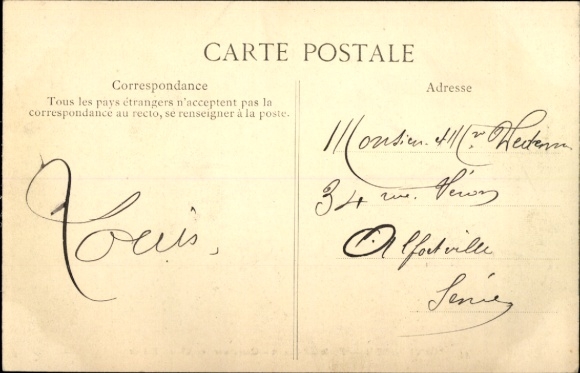 CARTE POSTALE
Correspondance
Tous les pays étrangers n'acceptent pas la
correspondance au recto, se renseigner à la poste.
Louis
Adresse
Monsieur
34 rue Véron
Alfortville
Seine